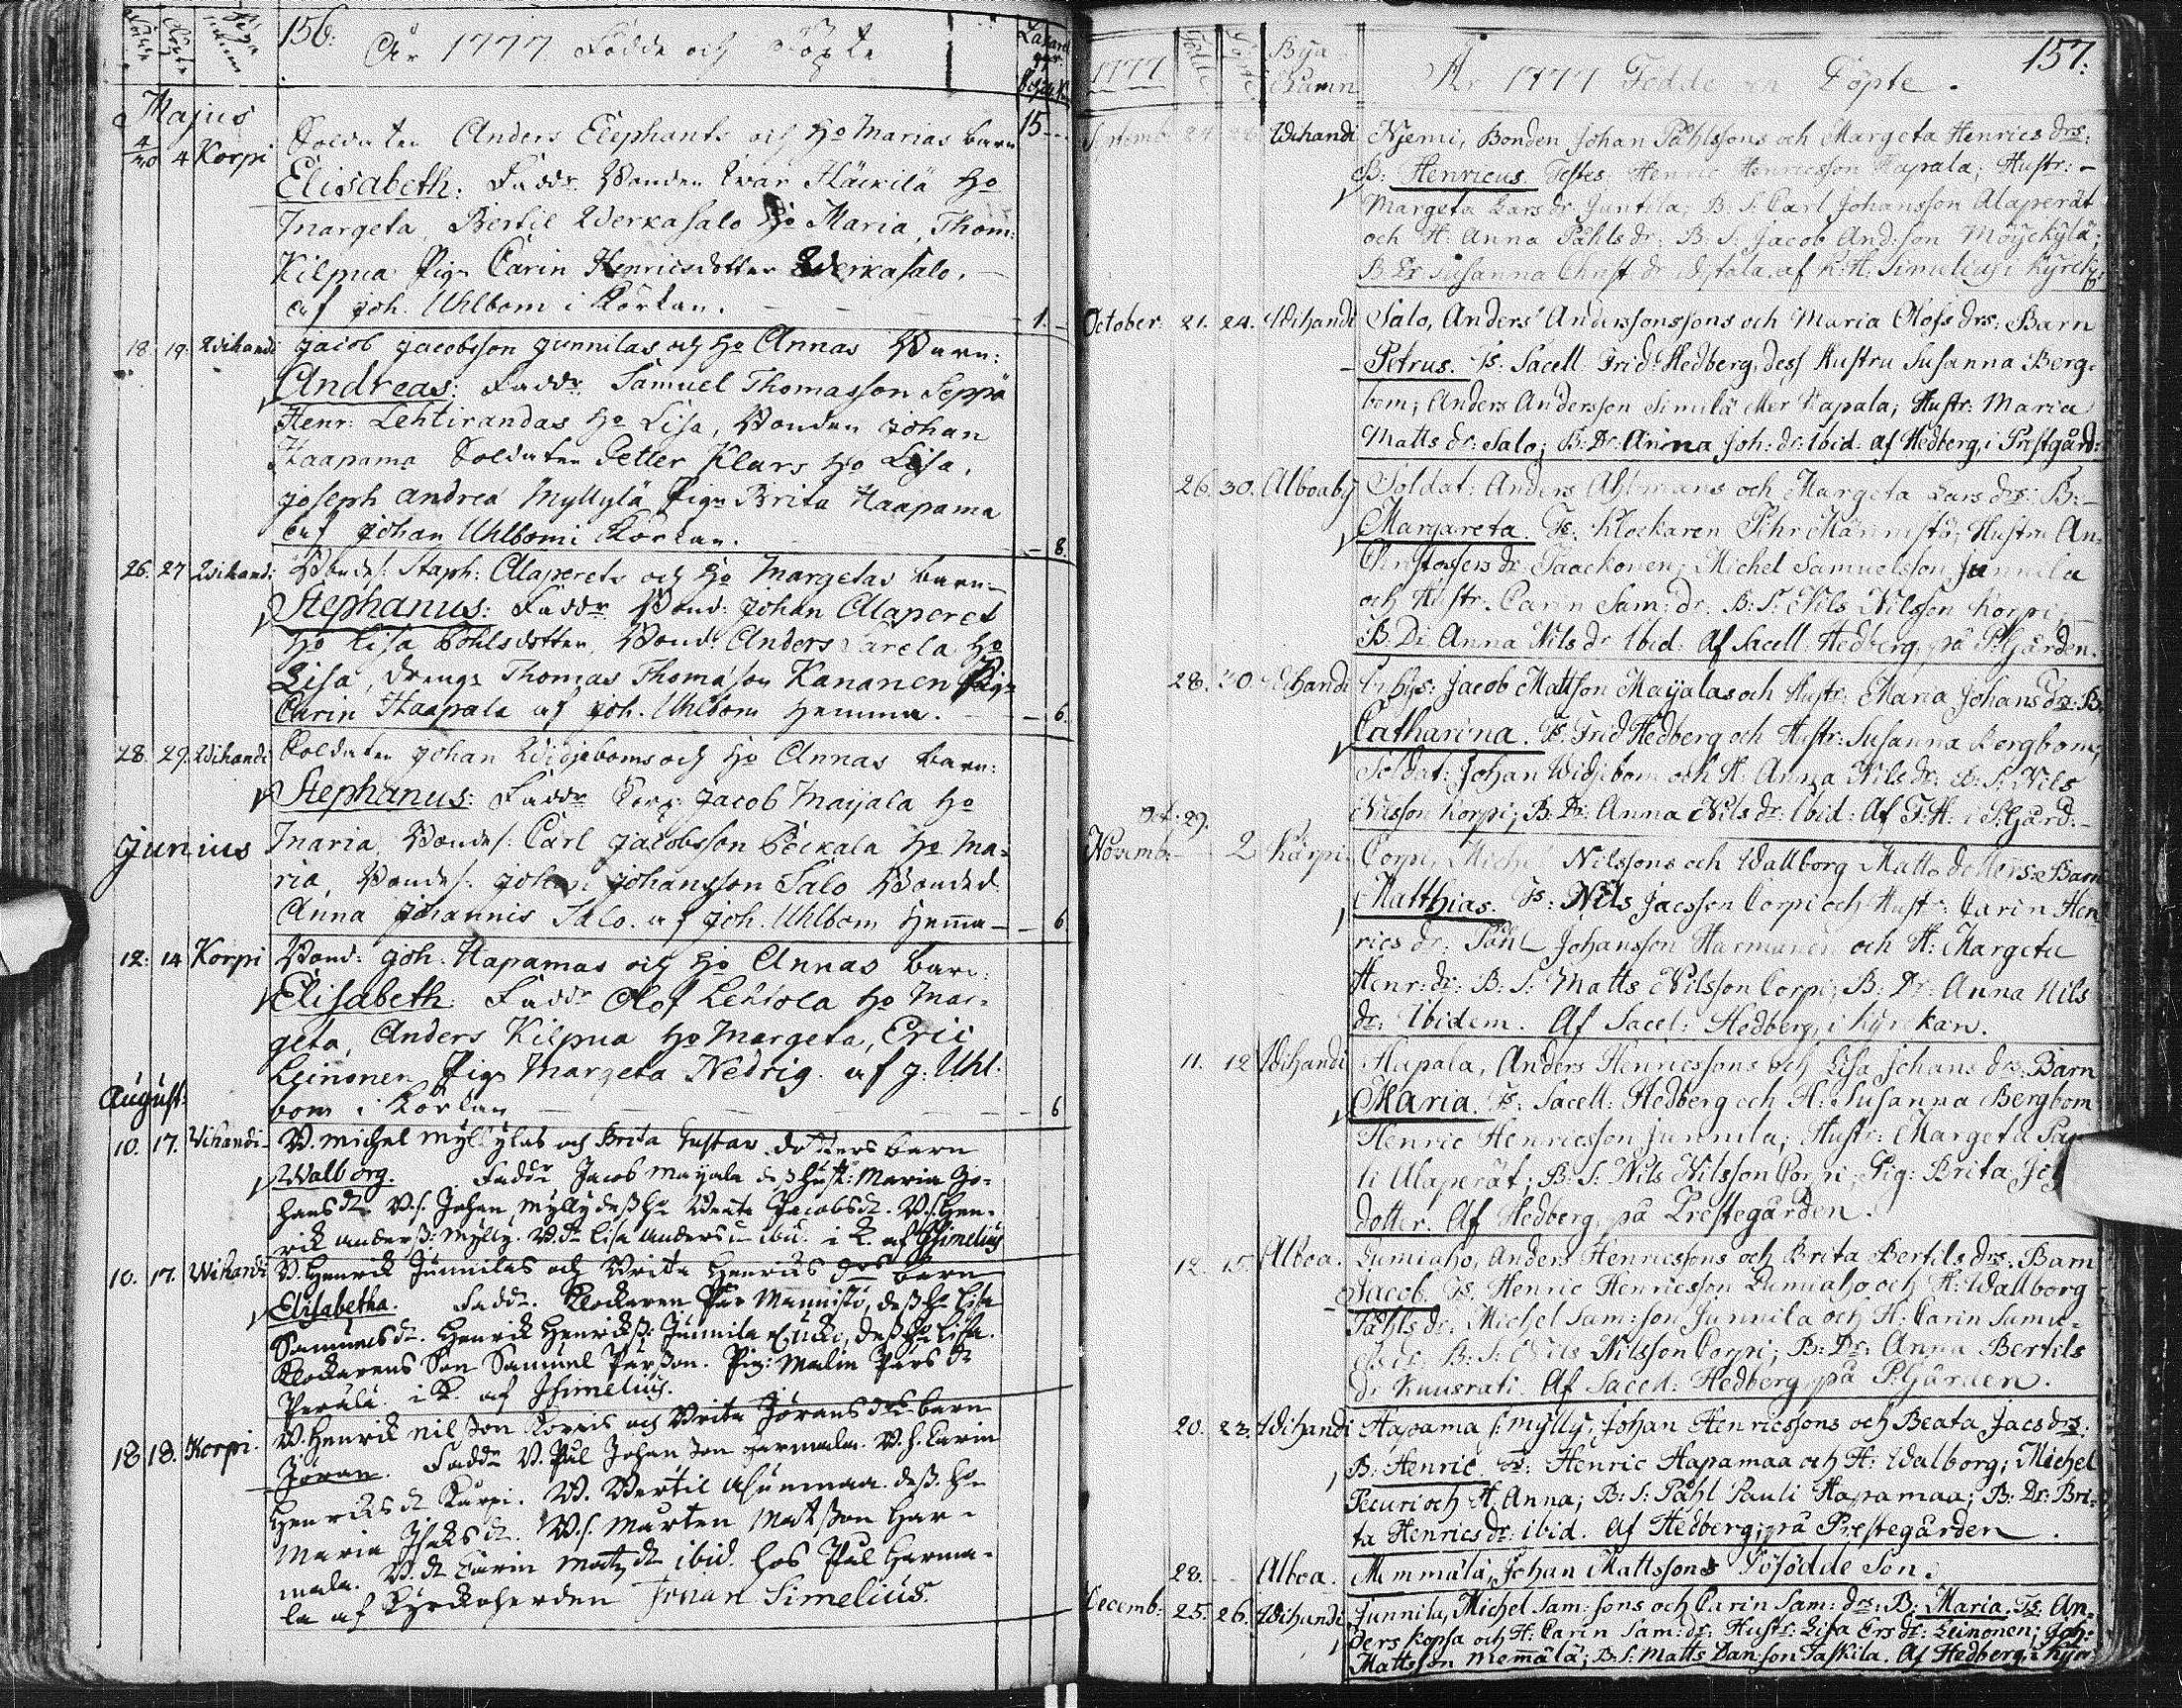 156:
År 1777 Födde och Döpte
Majus
15
4 Korpi Soldaten Anders Elephants och Ho Marias barn
Elisabeth: Faddr. Bonden Ivar Häckilä Ho
Margeta, Bertil Werkasalo Ho Maria, Thom:
Kilpua Pig. Carin Henricsdotter Werkasalo.
af Joh. Uhlbom i Körkan. 1.
18. 19. Wihandi Jacob Jacobsson Junnilas och Ho Annas Barn:
Andreas: Faddr. Samuel Thomasson Seppä
Henr: Lehtirandas Ho Lisa, Bonden Johan
Haapama Soldaten Petter Klars Ho Lisa,
Joseph Andreæ Myllylä Pig. Brita Haapama
af Johan Uhlbom i Körkan. 8.
26. 27 Wihand: Bondes. Staph: Alaperets och Ho Margetas barn
Stephanus: Faddr Bond: Johan Alaperet
Ho Lisa Pohlsdotter, Bond: Anders Sarela Ho
Lisa, Drengs Thomas Thomasson Kananen Pig.
Carin Haapala af Joh. Uhlbom Hemma. 6.
28. 29. Wihandi Soldaten Johan Widjeboms och Ho Annas barn:
Stephanus: Faddr Jacob Maijala Ho
Junius Maria, Bondes. Carl Jacobsson Pöckala Ho Ma-
ria, Bondes. Johan Johansson Salo Bonded.
Anna Johannis Salo. af Joh. Uhlbom Hemma 6
12: 14 Korpi Bond: Joh. Hapamas och Ho Annas barn:
Elisabeth: Faddr Olof Lehtola Ho Mar-
geta, Anders Kilpua Ho Margeta, Eric
Leinonen Pig. Margeta Nedrig. af J: Uhl-
August: bom i Körkan 6
10. 17. Wihandi B. Michel Myllylas och Brita Gustavs dotters barn
Walborg. Faddr Jacob Mayala deß hust: Maria Jo-
hans dr B.s. Johan Mylly deß ho Beata Jacobs dr. B.s. Hen-
rik Anderß: Mylly. B.dr Lisa Anders dr ibid. i K. af JSimelius
10. 17. Wihandi B. Henrik Junnilas och Brita Henriks drs barn
Elisabetha. Faddr. Klockaren Pär Mannistö, deß ho Lisa
Samuels dr. Henrik Henrikß: Junnila deß ho Lisa.
Klockarens Son Samuel Pärßon. Pig: Malin Pärs dr
Perälä. i K. af JSimelius.
18 18. Korpi. B. Henrik Nilßon Korpis och Brita Jörans drs barn
Jöran. Faddr B. Pål Johanßon Harmala. B. h. Carin
Henriks dr Korpi. B. Bertil Asunmaa. deß ho
Maria Isaks dr. B.s. Mårten Matßon Har-
mala. B. dr Carin Matz dr ibid. hos Pål Harma-
la af Kyrkoherden Jonan Simelius.
157:
1777 Födde Döpte Byia Namn År 1777 Födde Döpte.
Septemb: 24 Wihandi Njemi, Bonden Johan Påhlssons och Margeta Henrics drs:
B: Henricus. Testes: Henric Henricsson Hapala; Hustr:-
Margeta Lars dr Juntila; B: S: Carl Johansson Alaperät
och H: Anna Påhls dr: B: S: Jacob And:son Möyckylä;
B: Dr Susanna Christ: dr af K:H: Simelius i Kyrck:
October: 21. 24. Wihandi Salo, Anders Anderssonssons och Maria Olofs drs: Barn
Petrus. Ts: Sacell: Frid: Hedberg, dess Hustru Susanna Berg-
bom; Anders Andersson Similä eller Hapala; Hustr: Maria
Matts dr: Salo; B: Dr: Anna Joh: dr: ibid. af Hedberg, i Prestgård:
26. 30. Alboaby Soldat: Anders Ahlomans och Margeta Lars drs: B:-
Margareta. Ts: Klockaren Pehr Männistö; Hustru An-
Christoffers dr: Paackonen; Michel Samuelsson Junnila
och Hustr. Carin Sam: dr. B: S: Nils Nilsson Korpi;
B: Dr: Anna Nils dr ibid: Af Sacell: Hedberg, på P:Gården.
28. 30. Wihandi Inhys: Jacob Mattson Maijalas och Hustr: Maria Johans drs: B:
Catharina. Ts: Frid Hedberg och Hustr: Susanna Bergbom;
Soldat: Johan Widjebom och H: Anna Nils dr: B: S: Nils
Oct. 29. Nilsson Korpi; B: Dr: Anna Nils dr: ibid: Af F:H: i P:Gård:
Novemb: 2 Kårpi Corpi, Michel Nilssons och Wallborg Matts dotters Barn
Matthias. Ts: Nils Jacsson Corpi och Hustr: Carin Hen-
rics dr: Påhl Johansson Harmanen och H: Margeta
Henr: dr: B: S: Matts Nilsson Corpi; B: Dr: Anna Nils
dr: ibidem. Af Sacel: Hedberg, i Kyrckan.
11. 12 Wihandi Hapala, Anders Henricssons och Lisa Johans drs: Barn
Maria. Ts: Sacell: Hedberg och H: Susanna Bergbom
Henric Henricsson Junnila; Hustr: Margeta
Alaperät; B: S: Nils Nilsson Corpi; Pig: Brita
dotter. Af Hedberg, på Prestegården.
12. 15. Alboa. Lumiaho, Anders Henricssons och Brita Bertils drs: Barn
Jacob. Ts: Henric Henricsson Lumiaho och H: Wallborg
Påhls dr: Michel Sam:son Junnila och H: Carin Samu-
els dr. B: S: Nils Nilsson Corpi; B: Dr: Anna Bertils
dr Kuusrati. Af Sacell: Hedberg, på P:Gården.
20. 22. Wihandi Hapama l: Mylly, Johan Henricssons och Beata Jacs drs:
B: Henric. Ts: Henric Hapamaa och H: Walborg; Michel
Pecuri och H: Anna; B: S: Påhl Pauli Hapamaa; B: Dr: Bri-
ta Henrics dr: ibid. Af Hedberg, på Prestegården.
28. Alboa. Memmälä, Johan Mattssons Dödfödde Son.
Decemb: 25. 26. Wihandi Junnila, Michel Sam:sons och Carin Sam: drs: B: Maria. Ts: An-
ders Kopsa och H: Carin Sam: dr: Hustr: Lisa Ers dr: Leinonen; Joh:
Mattsson Memälä; B: S: Matts Dan:son Taskila. Af Hedberg, i Kyr: